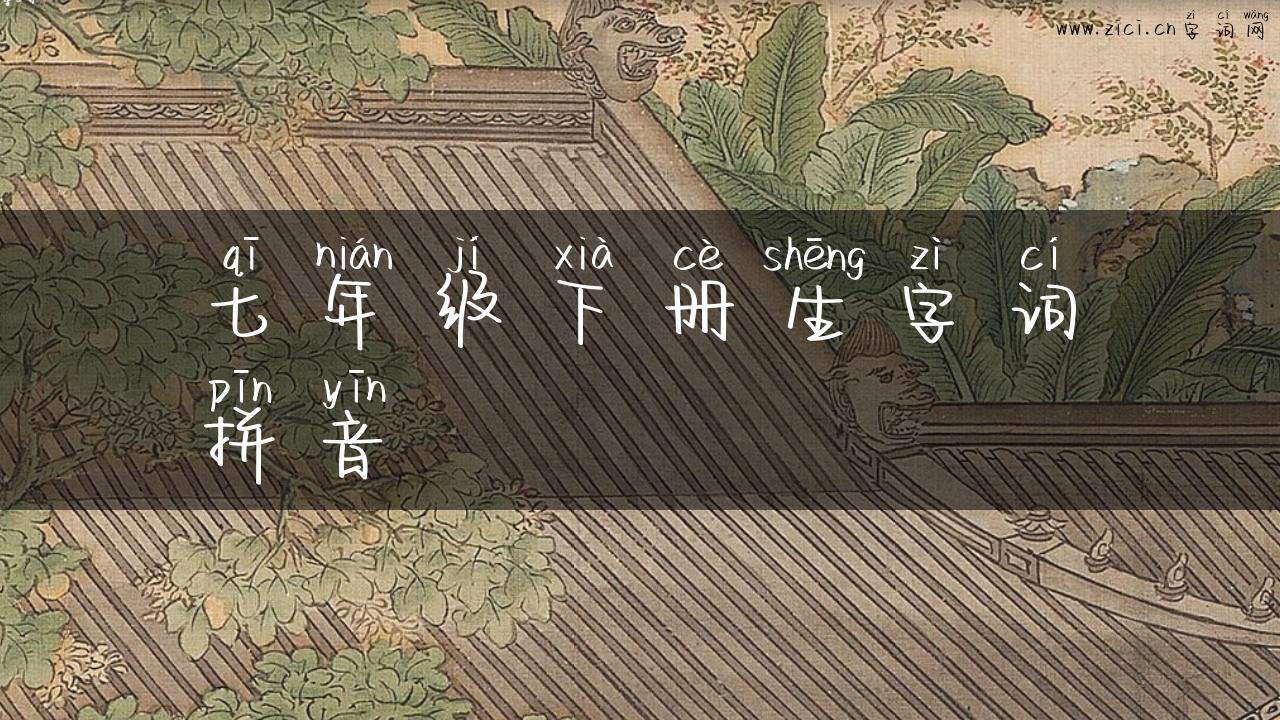 zì cí wǎng
www.zici.cn 字词网
qī nián jí xià cè shēng zì cí
七年级下册生字词
pīn yīn
拼音